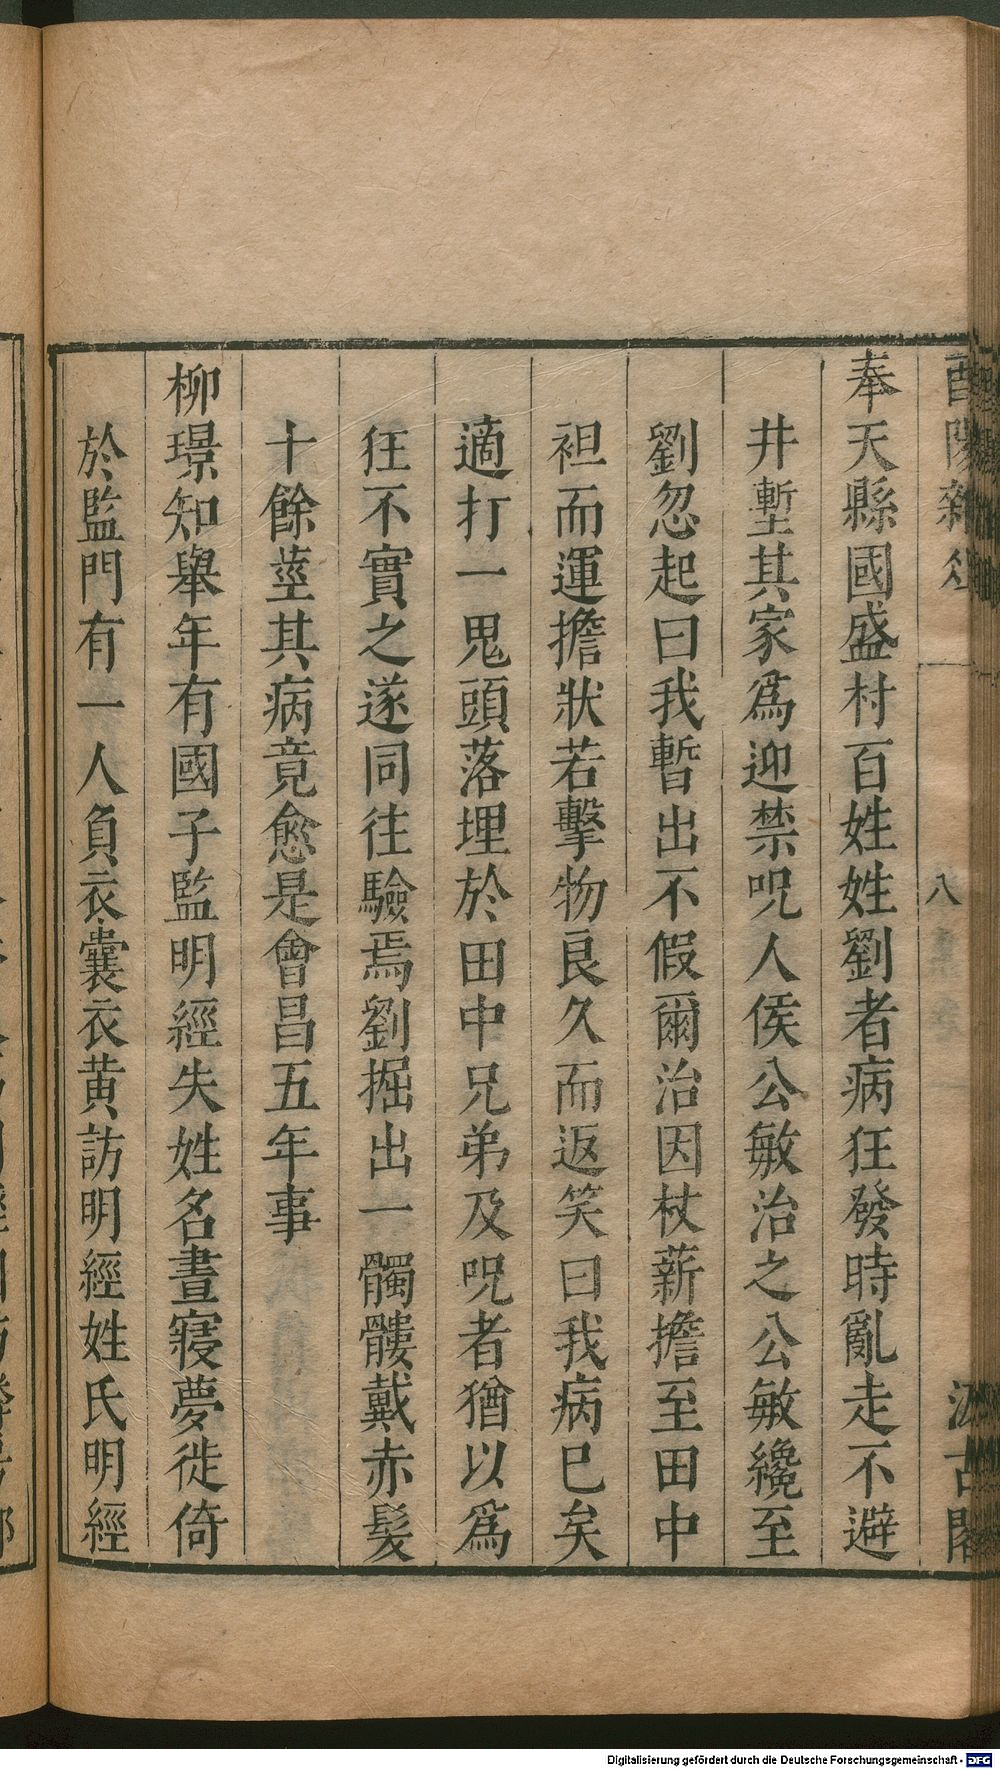 酉陽雜俎
八
汲古閣
奉天縣國盛村百姓姓劉者病狂發時亂走不避
井塹其家爲迎禁呪人侯公敏治之公敏纔至
劉忽起曰我暫出不假爾治因杖薪擔至田中
袒而運擔狀若擊物良久而返笑曰我病已矣
適打一鬼頭落埋於田中兄弟及呪者猶以爲
狂不實之遂同往驗焉劉掘出一髑髏戴赤髮
十餘莖其病竟愈是會昌五年事
柳璟知舉年有國子監明經失姓名晝寢夢徙倚
於監門有一人負衣囊衣黄訪明經姓氏明經
Digitalisierung gefördert durch die Deutsche Forschungsgemeinschaft - DFG